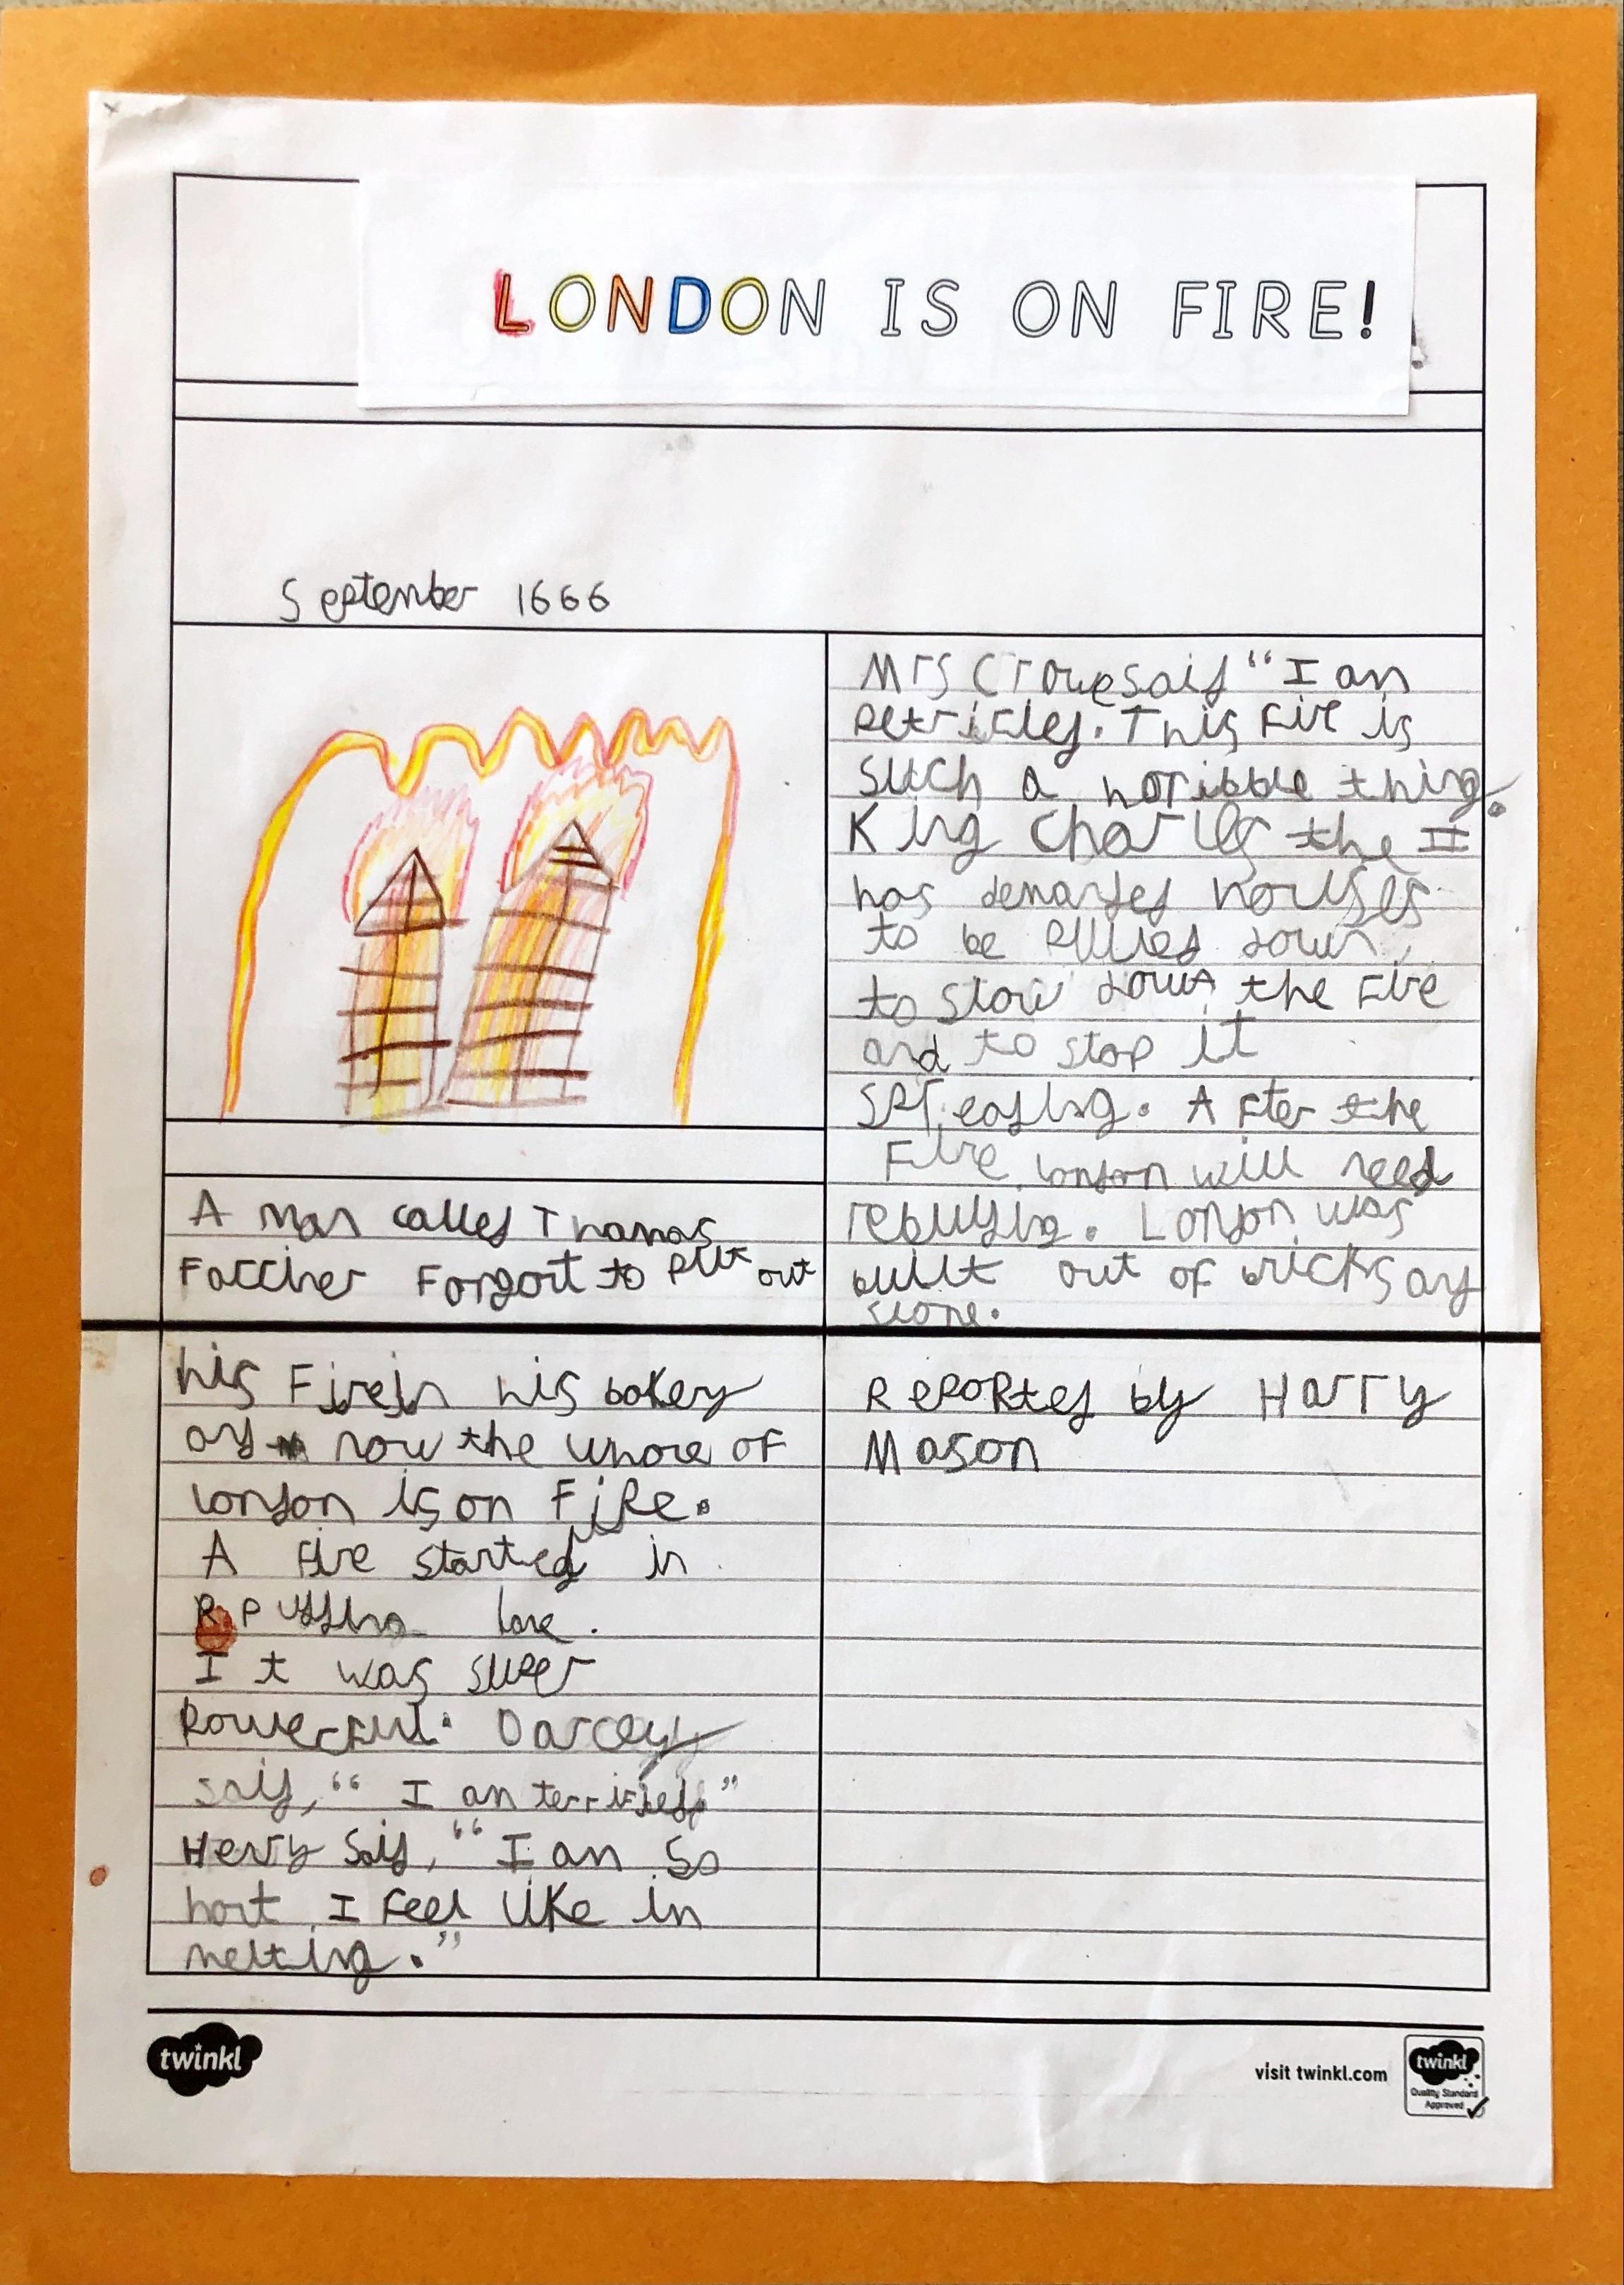 LONDON IS ON FIRE!
September 1666
A man called Thomas
Farriner Forgort to put out
his Fire in his bakery
and now the whole of
london is on FiRe.
A fire started in
Pudding lane.
It was super
Powerful. Darcey
said, “I am terrified”
Henry Said, “I am So
hort I Feel like im
melting.”
Mrs Crowe said “I am
petrified. This Fire is
such a horibble thing.
King Charles the II
has demanded houses
to be pulled down,
to slow down the Fire
and to stop it
spreading. After the
Fire london will need
rebuilding. London was
built out of bricks and
stone.
RepoRted by Harry
Mason
twinkl
visit twinkl.com
twinkl
Quality Standard
Approved